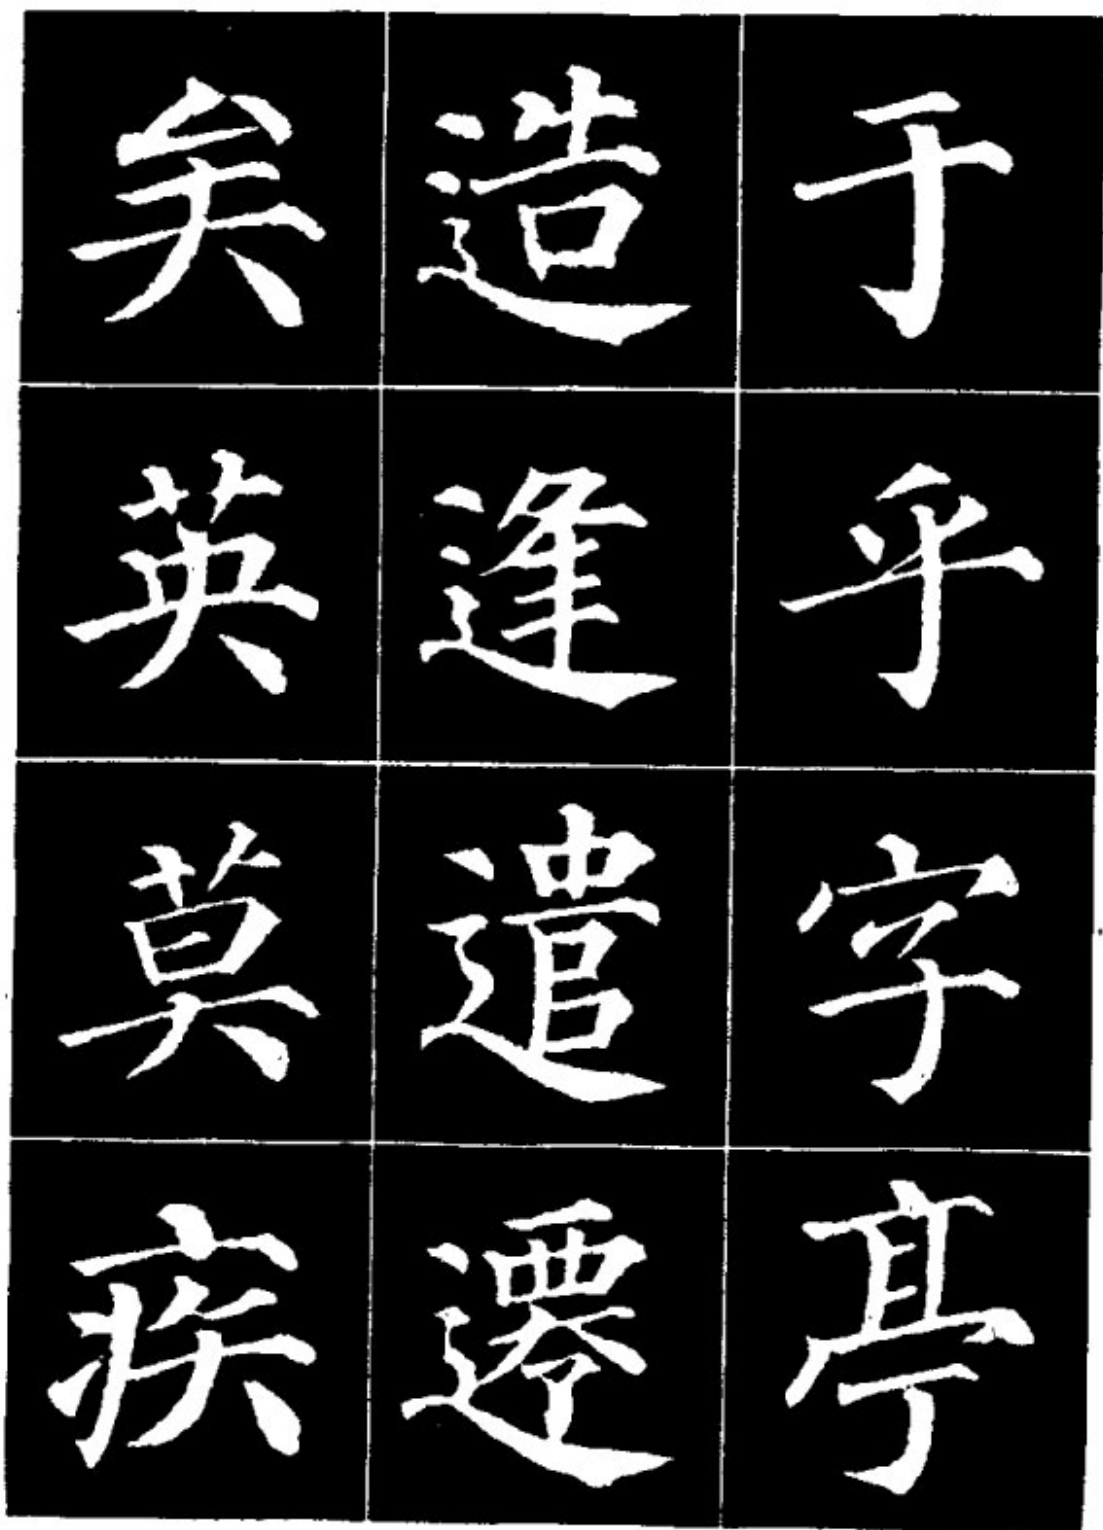 于乎字亭
造逢遣遷
矣英莫疾